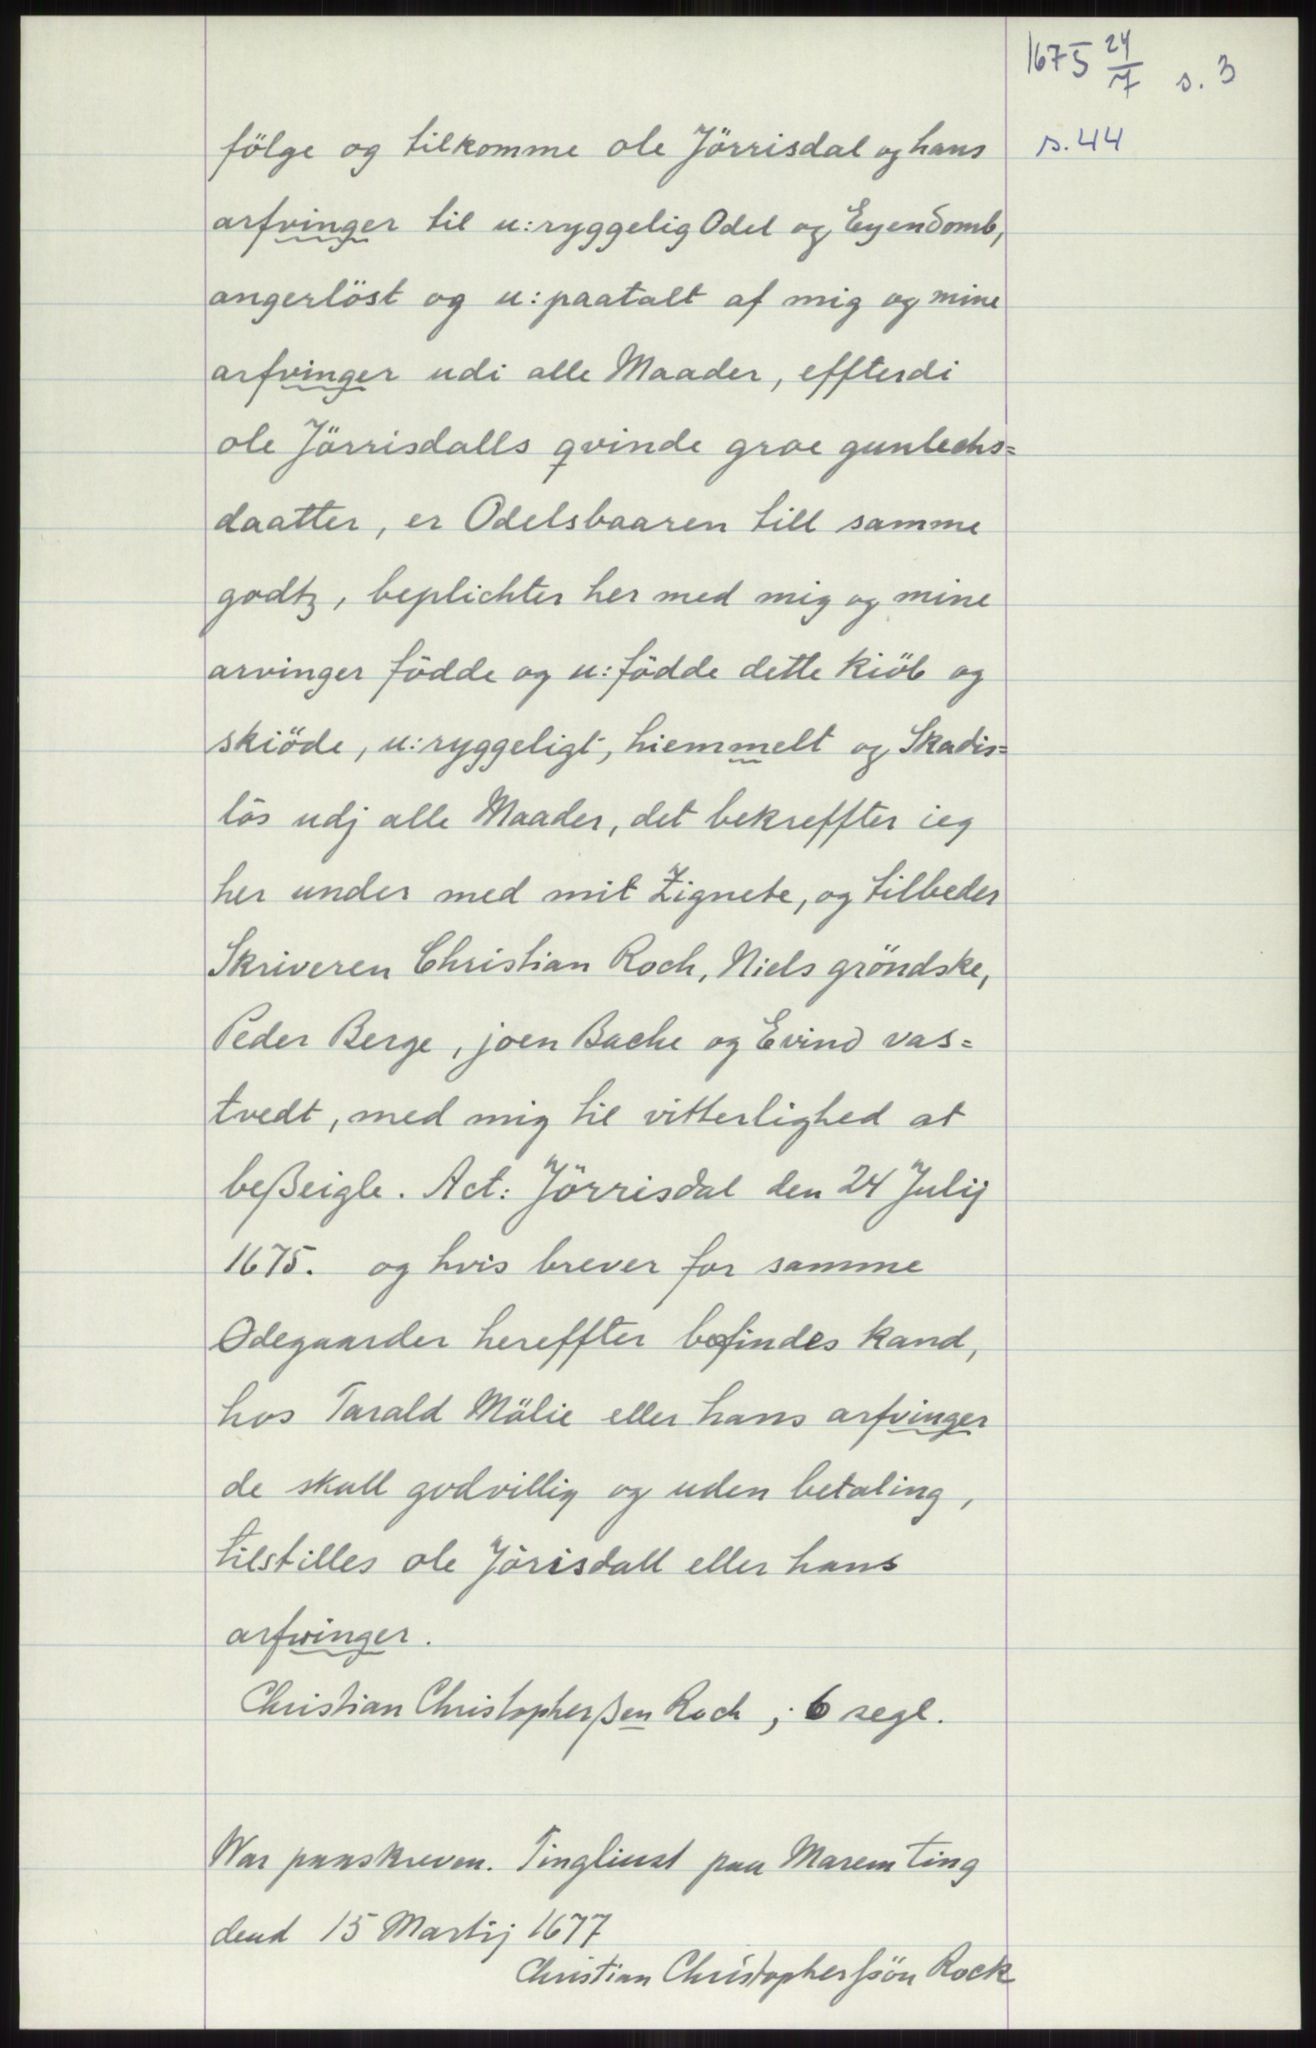 1675 24/7 s. 3
s. 44
fölge og tilkomme ole Jörrisdal og hans
arfvinger til u:ryggelig Odel og Eyendomb,
angerlöst og u:paatalt af mig og mine
arfvinger udi alle Maader, effterdi
ole Jörrisdalls qvinde groe gunlechs=
daatter, er Odelsbaaren till samme
godtz, beplichter her med mig og mine
arvinger födde og u:födde dette kiöb og
skiöde, u:ryggeligt, hiemmelt og Skadis=
lös udj alle Maader, det bekreffter ieg
her under med mit Zignete, og tilbeder
Skriveren Christian Roch, Niels gröndske,
Peder Berge, joen Bache og Evind vas=
tvedt, med mig til vitterlighed at
beßeigle. Act: Jörrisdal den 24 Julij
1675. og hvis brever for samme
Ödegaarder hereffter befindes kand,
hos Tarald Mälie eller hans arfvinger
de skall godvillig og uden betaling,
tilstilles ole Jörisdall eller hans
arfvinger.
Christian Christopherßen Roch, 6 segl.
War paaskreven. Tingliust paa Marem ting
dend 15 Martij 1677
Christian Christophersön Rock